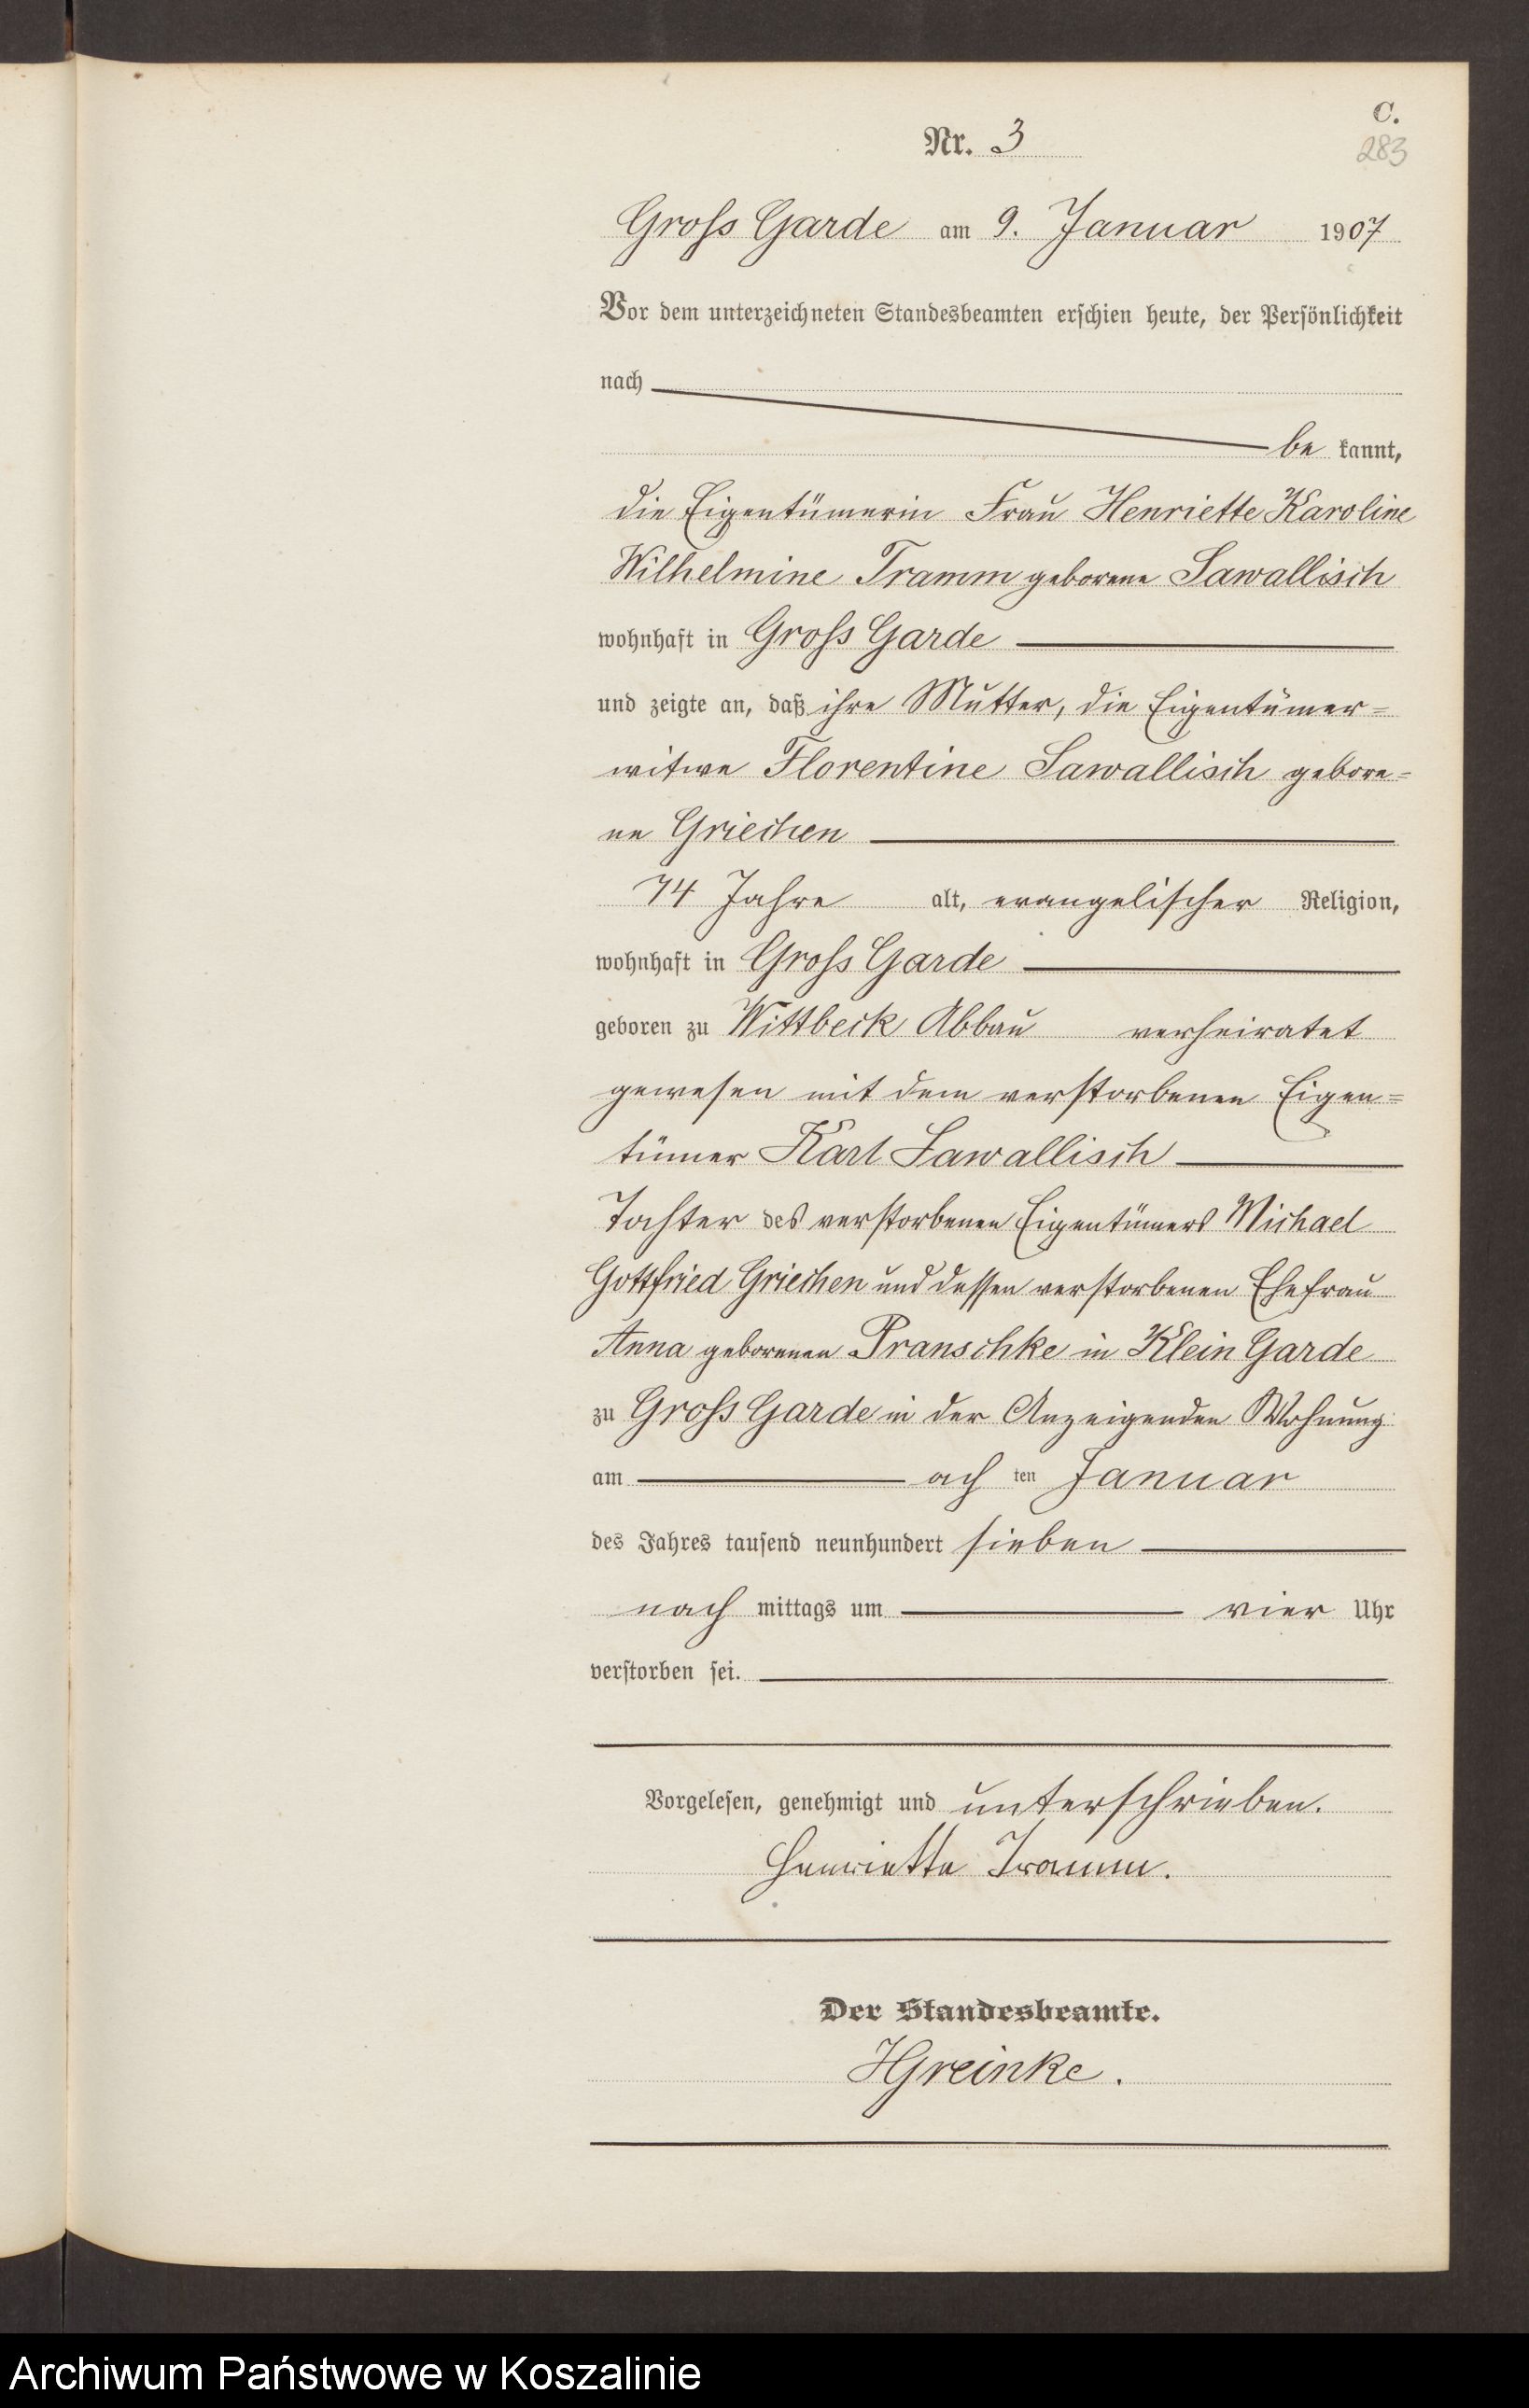 C.
Nr. 3
283
Gross Garde am 9. Januar 1907
Vor dem unterzeichneten Standesbeamten erschien heute, der Persönlichkeit
nach
be kannt,
die Eigentümerin Frau Henriette Karoline
Wilhelmine Tramm geborene Sawallisch
wohnhaft in Gross Garde
und zeigte an, daß ihre Mutter, die Eigentümer=
witwe Florentine Sawallisch gebore=
ne Griechen
74 Jahre alt, evangelischer Religion,
wohnhaft in Gross Garde
geboren zu Wittbeck Abbau verheiratet
gewesen mit dem verstorbenen Eigen=
tümer Karl Sawallisch
Tochter des verstorbenen Eigentümers Michael
Gottfried Griechen und dessen verstorbenen Ehefrau
Anna geborenen Pranschke in Klein Garde
zu Gross Garde in der Anzeigenden Wohnung
am ach ten Januar
des Jahres tausend neunhundert sieben
nach mittags um vier Uhr
verstorben sei.
Vorgelesen, genehmigt und unterschrieben.
Henriette Tramm.
Der Standesbeamte.
HGreinke.
Archiwum Państwowe w Koszalinie